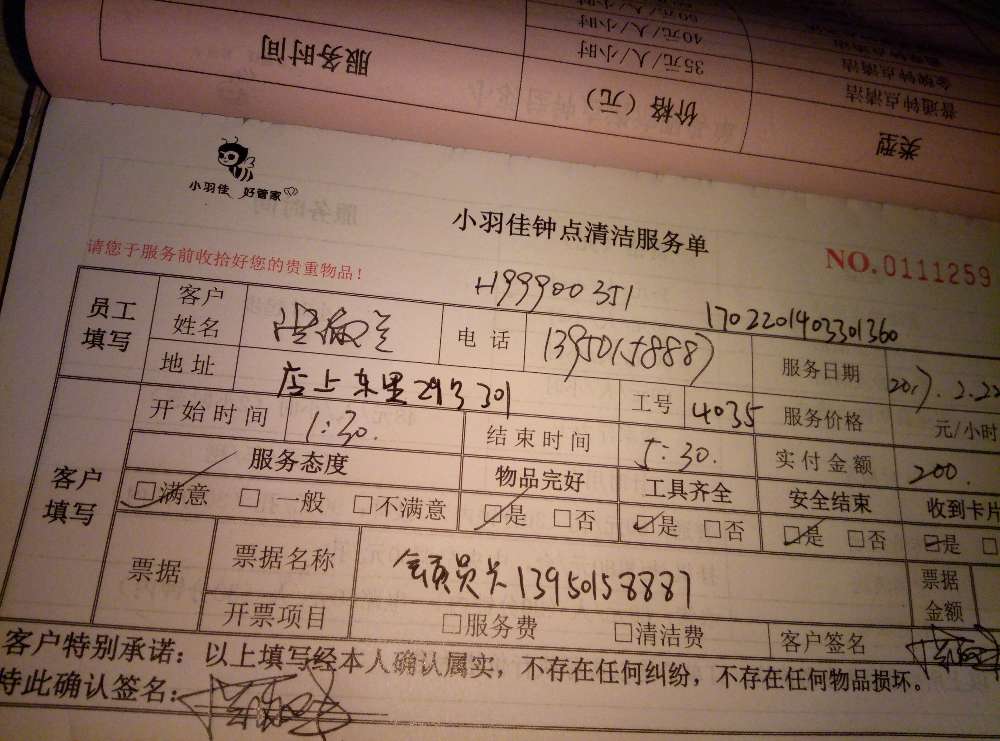 服务时间
价格（元）
类型
35元/人/小时
普通钟点清洁
40元/人/小时
金牌钟点清洁
小羽佳 好管家
小羽佳钟点清洁服务单
请您于服务前收拾好您的贵重物品！
NO.0111259
H99900351
1702201403301360
员工填写
客户姓名
电话
13950158887
服务日期
2017.2.22
地址
店上东里29号301
工号
4035
服务价格
元/小时
客户填写
开始时间
1:30.
结束时间
5:30.
实付金额
200.
服务态度
物品完好
工具齐全
安全结束
收到卡片
☑满意 □一般 □不满意
☑是 □否
☑是 □否
☑是 □否
☑是 □
票据
票据名称
会员 13950158887
票据金额
开票项目
□服务费
□清洁费
客户签名
客户特别承诺：以上填写经本人确认属实，不存在任何纠纷，不存在任何物品损坏。
特此确认签名：